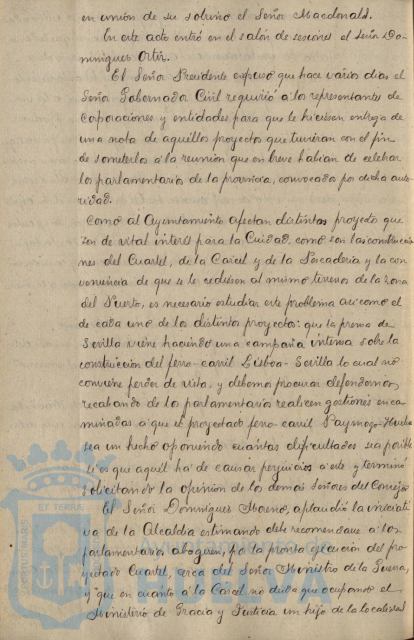 en union de su sobrino el Señor Macdonald.
En este acto entró en el salón de sesiones el señor Do-
minguez Ortiz.
El Señor Presidente expuso que hace varios dias el
Señor Gobernador Civil requirió a los representantes de
Corporaciones y entidades para que le hiciesen entrega de
una nota de aquellos proyectos que tuvieran con el fin
de someterlos a la reunion que en breve habian de celebrar
los parlamentarios de la provincia, convocados por dicha auto-
ridad.
Como al Ayuntamiento afectan distintos proyectos que
son de vital interés para la Ciudad, como son las construccio-
nes del Cuartel, de la Carcel y de la Pescaderia y la con-
veniencia de que se le cediesen al mismo terrenos de la zona
del Puerto, es necesario estudiar este problema asi como el
de cada uno de los distintos proyectos: que la prensa de
Sevilla viene haciendo una campaña intensa sobre la
construccion del ferro-carril Lisboa-Sevilla lo cual no
conviene perder de vista, y debemos procurar defendernos,
recabando de los parlamentarios realicen gestiones enca-
minadas a que el proyectado ferro-carril Paymogo-Huelva
sea un hecho oponiendo cuantas dificultades sea posible
si es que aquel ha de causar perjuicios a este y terminó
solicitando la opinion de los demás Señores del Consejo.
El Señor Dominguez Moreno, aplaudió la iniciati-
va de la Alcaldía estimando debe recomendarse a los
parlamentarios aboguen, por la pronta ejecucion del pro-
yectado Cuartel, cerca del Señor Ministro de la Guerra,
y que en cuanto a la Carcel no duda que ocupando el
Ministerio de Gracia y Justicia un hijo de la localidad
Ayuntamiento de
HUELVA